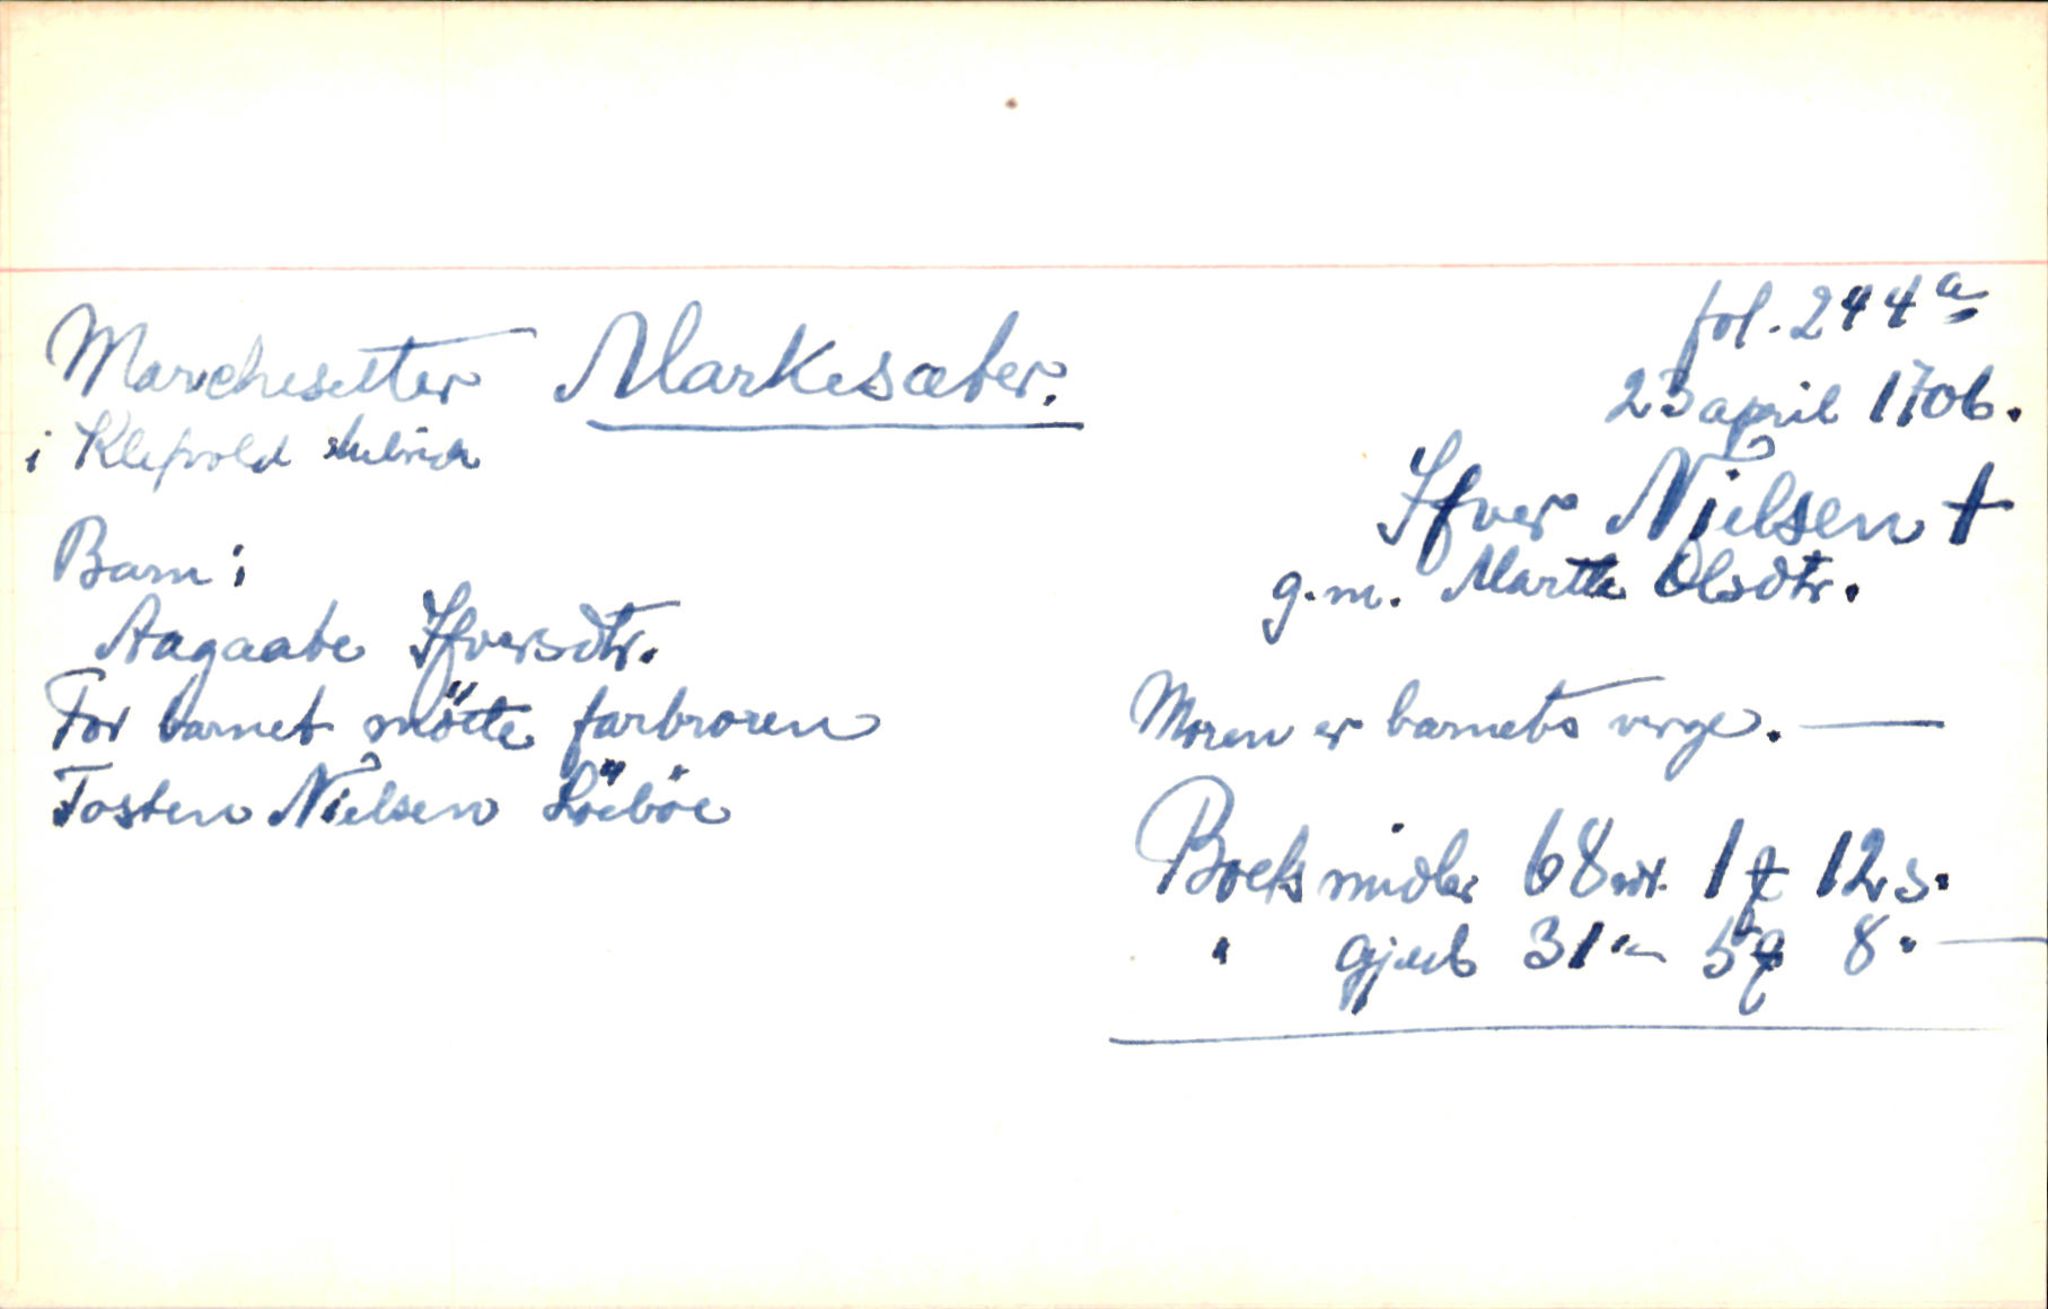 fol. 244a
Marchesetter Markesæter.
23 april 1706.
i Klepvold
Ifver Nielsen †
g.m. Marthe Olsdtr.
Barn:
Aagaate Ifversdtr.
For barnet mötte farbroren
Tosten Nielsen Löeböe
Moren er barnets verge. —
Boets midler 68 rdr. 1 12 s.
" gjæld 31 " 5 8 " —